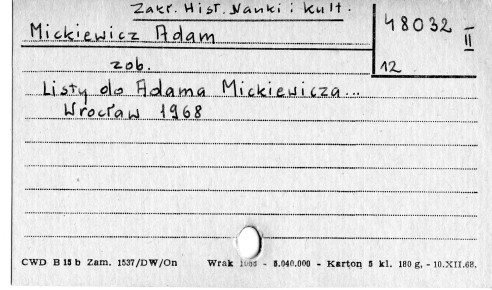 Zakr. Hist. Nauki i Kult.
Mickiewicz Adam
48032 II
12
zob.
Listy do Adama Mickiewicza...
Wrocław 1968
CWD B 15 b Zam. 1537/DW/On Wrak - 5.040.000 - Karton 5 kl. 180 g, - 10.XII.68.